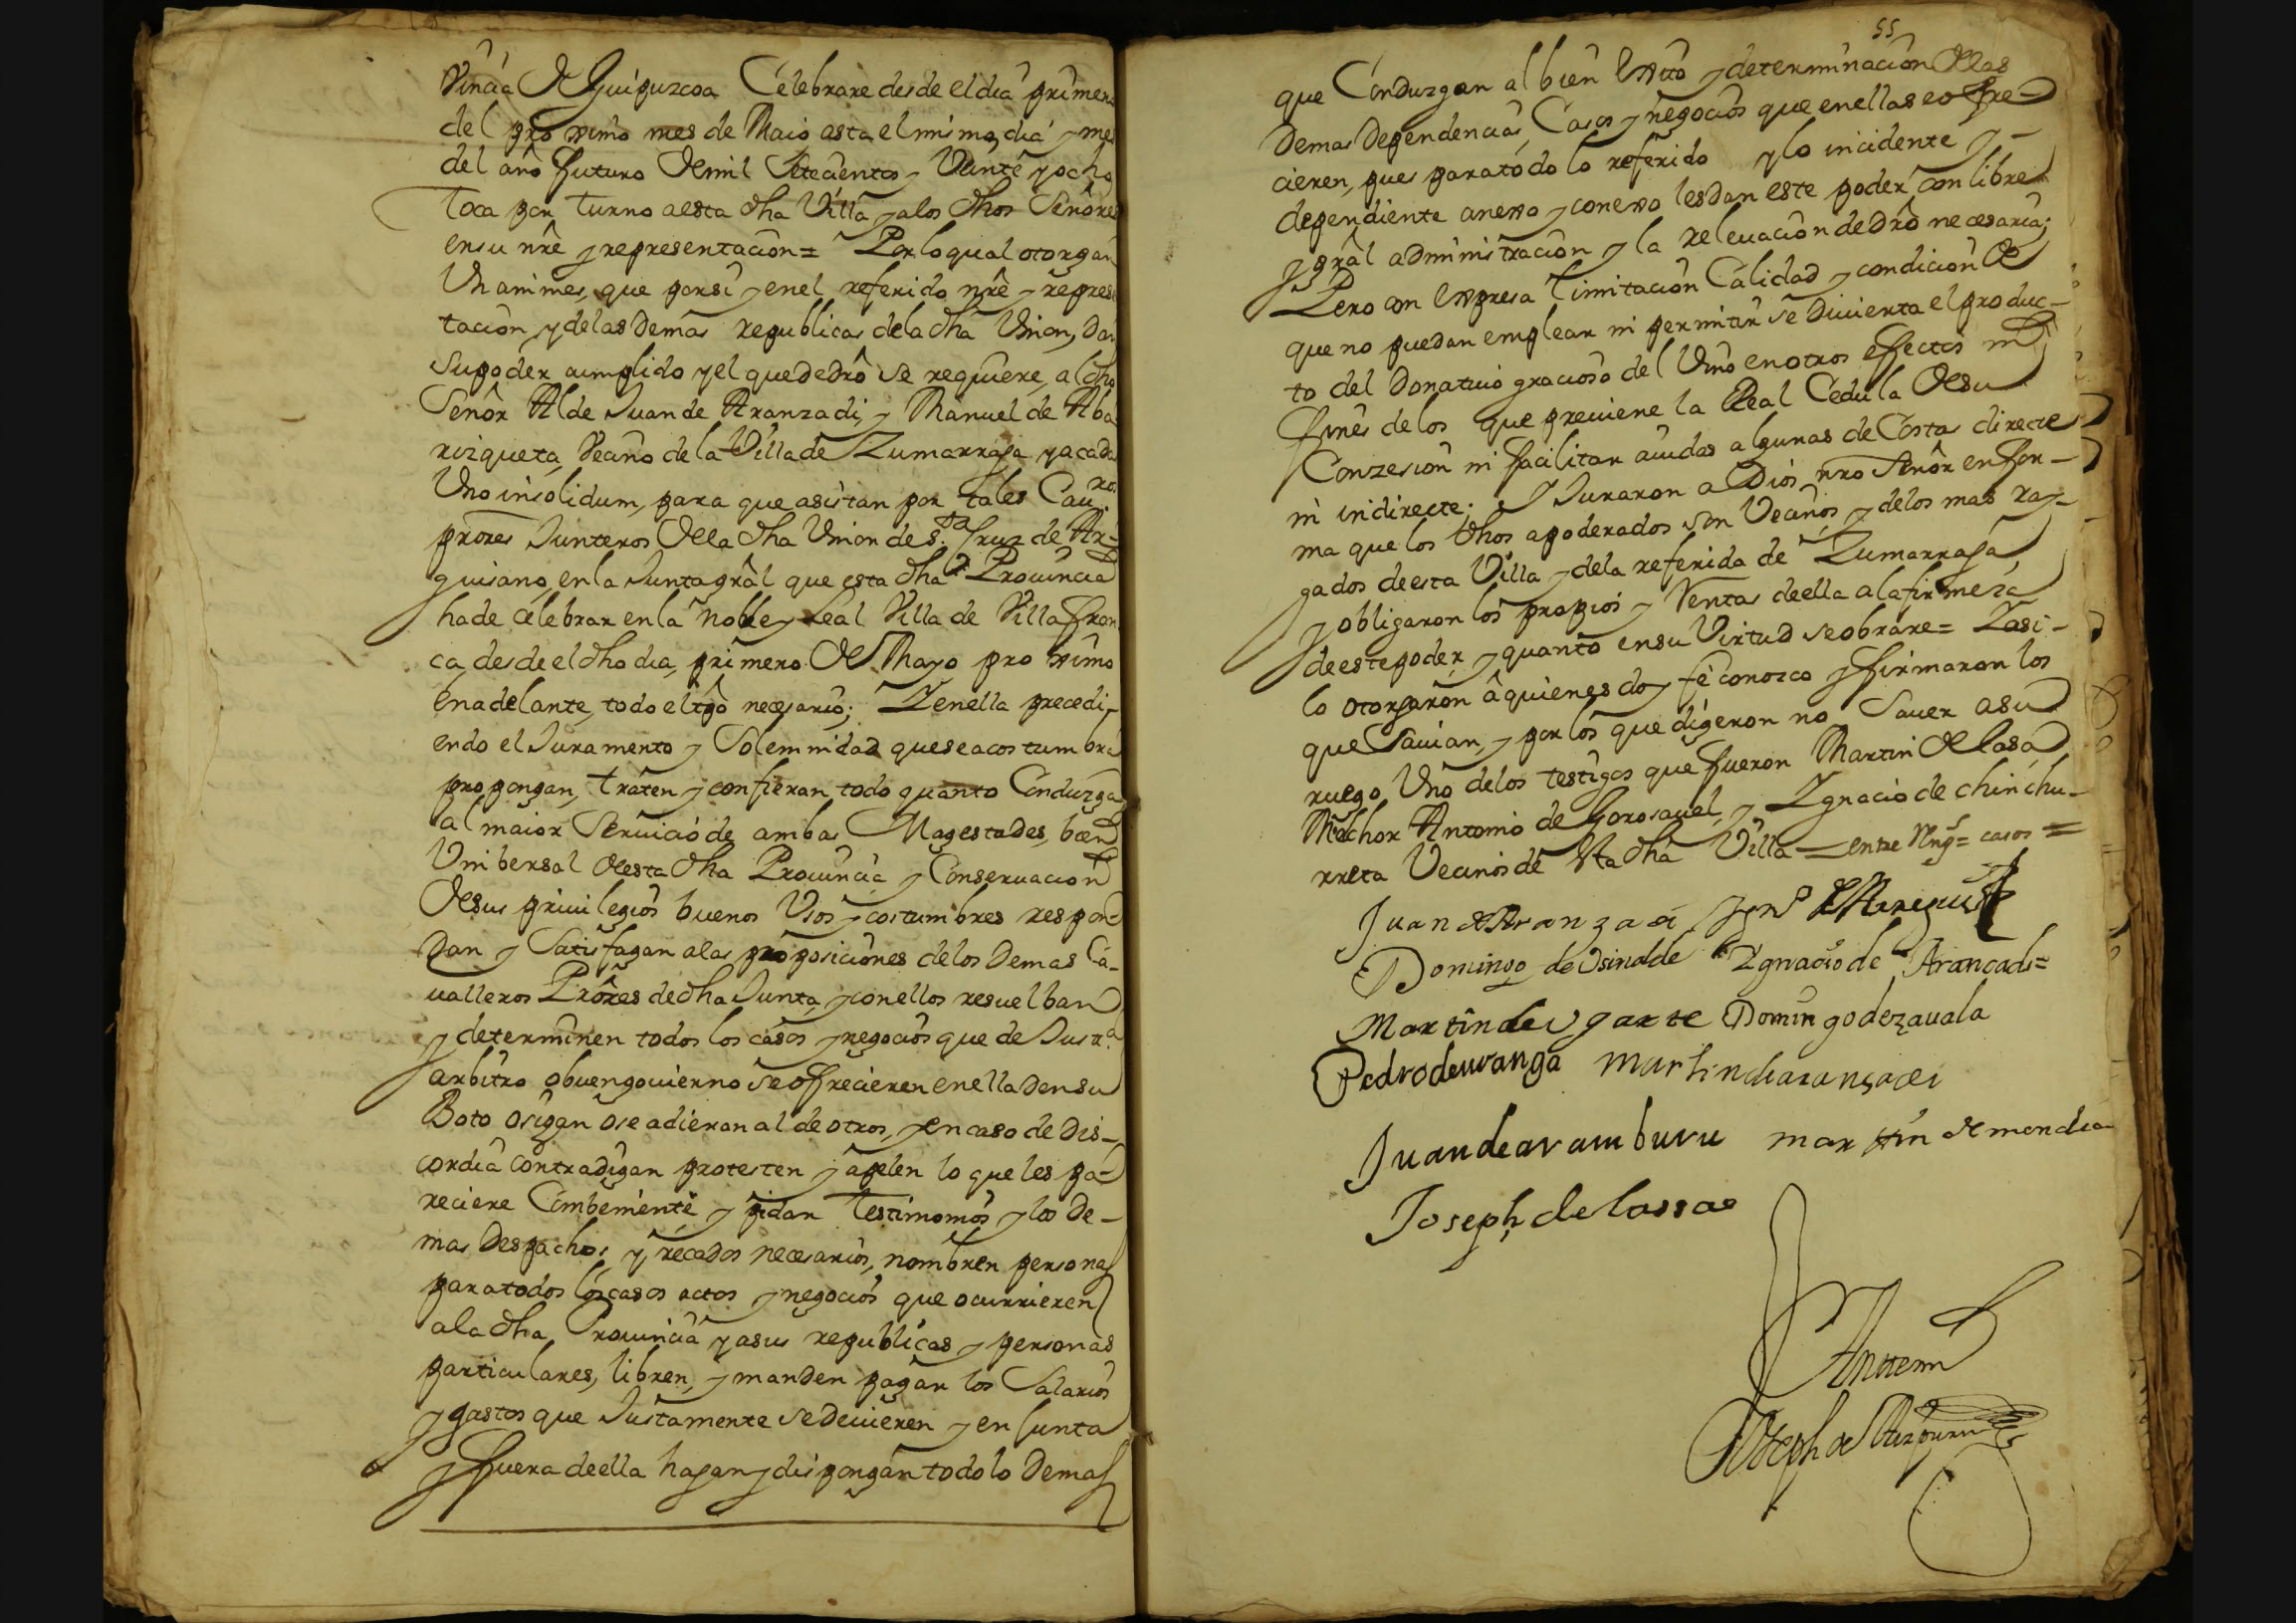 Vinçia de Guipuzcoa Celebrare desde el dia primero
del proximo mes de Maio asta el mismo dia y mes
del año futuro de mil Setecientos y Veinte y ocho
Toca por turno a esta dha Villa y alos dhos Señores
en su nre y representacion = Por lo qual otorgan
Unanimes, que por si y en el referido nre y represen
tacion, y de las Demas republicas de la dha Union, dan
su poder cumplido y el que de dro se requiere, al dho
Señor Alde Juan de Aranzadi, y Manuel de Aba
rizqueta, Vecino de la Villa de Zumarraga y a cada
Uno insolidum, para que asistan por tales Cau.ros
prores Junteros de la dha Union de S.ta Cruz de Ar-
guisano, en la Junta gral que esta dha Prouincia
ha de celebrar en la Noble y Leal Villa de Villafran
ca desde el dho dia, primero de Mayo proximo
en adelante, todo el tpo necesario; Y en ella precedi-
endo el Juramento y Solemnidad que se acostumbra
propongan, traten y confieran todo quanto Conduzga
al maior Seruicio de ambas Magestades, bien
Unibersal de esta dha Prouincia y Conseruacion
de sus priuilegios buenos Usos y costumbres respon-
dan y Satisfagan a las proposiciones de los Demas Ca-
ualleros Prores de dha Junta, y con ellos resuelban
y determinen todos los casos y negocios que de Just.a
arbitro o buen gouierno se offrecieren en ella den su
Boto o sigan o se adieran al de otros, y en caso de Dis-
cordia contradigan protesten y apelen lo que les pa-
reciere Combeniente y pidan Testimonios y los De-
mas Despachos y recados necesarios, nombren personas
para todos los casos actos y negocios que ocurrieren
a la dha Prouincia y a sus republicas y personas
particulares, libren, y manden pagar los Salarios
y gastos que Justamente se deuieren y en Junta
y fuera de ella hagan y dispongan todo lo Demas
55
que Conduzgan al bien Exito y determinacion de las
Demas Dependencias, Casos y negocios que en ellas se offre-
cieren, pues para todo lo referido y lo incidente y -
dependiente anexo y conexo les dan este poder con libre
y gral administracion y la releuacion de dro necesaria;
Pero con Expresa limitacion Calidad y condicion de
que no puedan emplear ni permitir se Diuierta el produc-
to del Donatiuo gracioso del Vino en otros effectos ni
fines de los que preuiene la Real Cedula de su
Conzesion ni facilitar aiudas algunas de Costas directe
ni indirecte. Y Juraron a Dios nro Señor en for-
ma que los dhos apoderados son Vecinos y de los mas ray-
gados de esta Villa y de la referida de Zumarraga,
y obligaron los propios y Rentas de ella a la firmeza
de este poder, y quanto en su Virtud se obrare = Y asi -
lo otorgaron a quienes doy fe conozco y firmaron los
que Sauian, y por los que digeron no Sauer a su
ruego Uno de los testigos que fueron Martin de Lasa,
Melchor Antonio de Gorosauel, y Ygnacio de chinchu-
rreta Vecinos de esta dha Villa = entre Rng.s = casos =
Juan de Aranzadi
Domingo de Usinalde Ygnacio de Arançadi =
Martin de Ugarte Domingo de zauala
Pedro de uranga Martin de aransadi
Juan de aramburu martin de mendia
Joseph de lassa
Ante mi
Joseph de Aizpuru